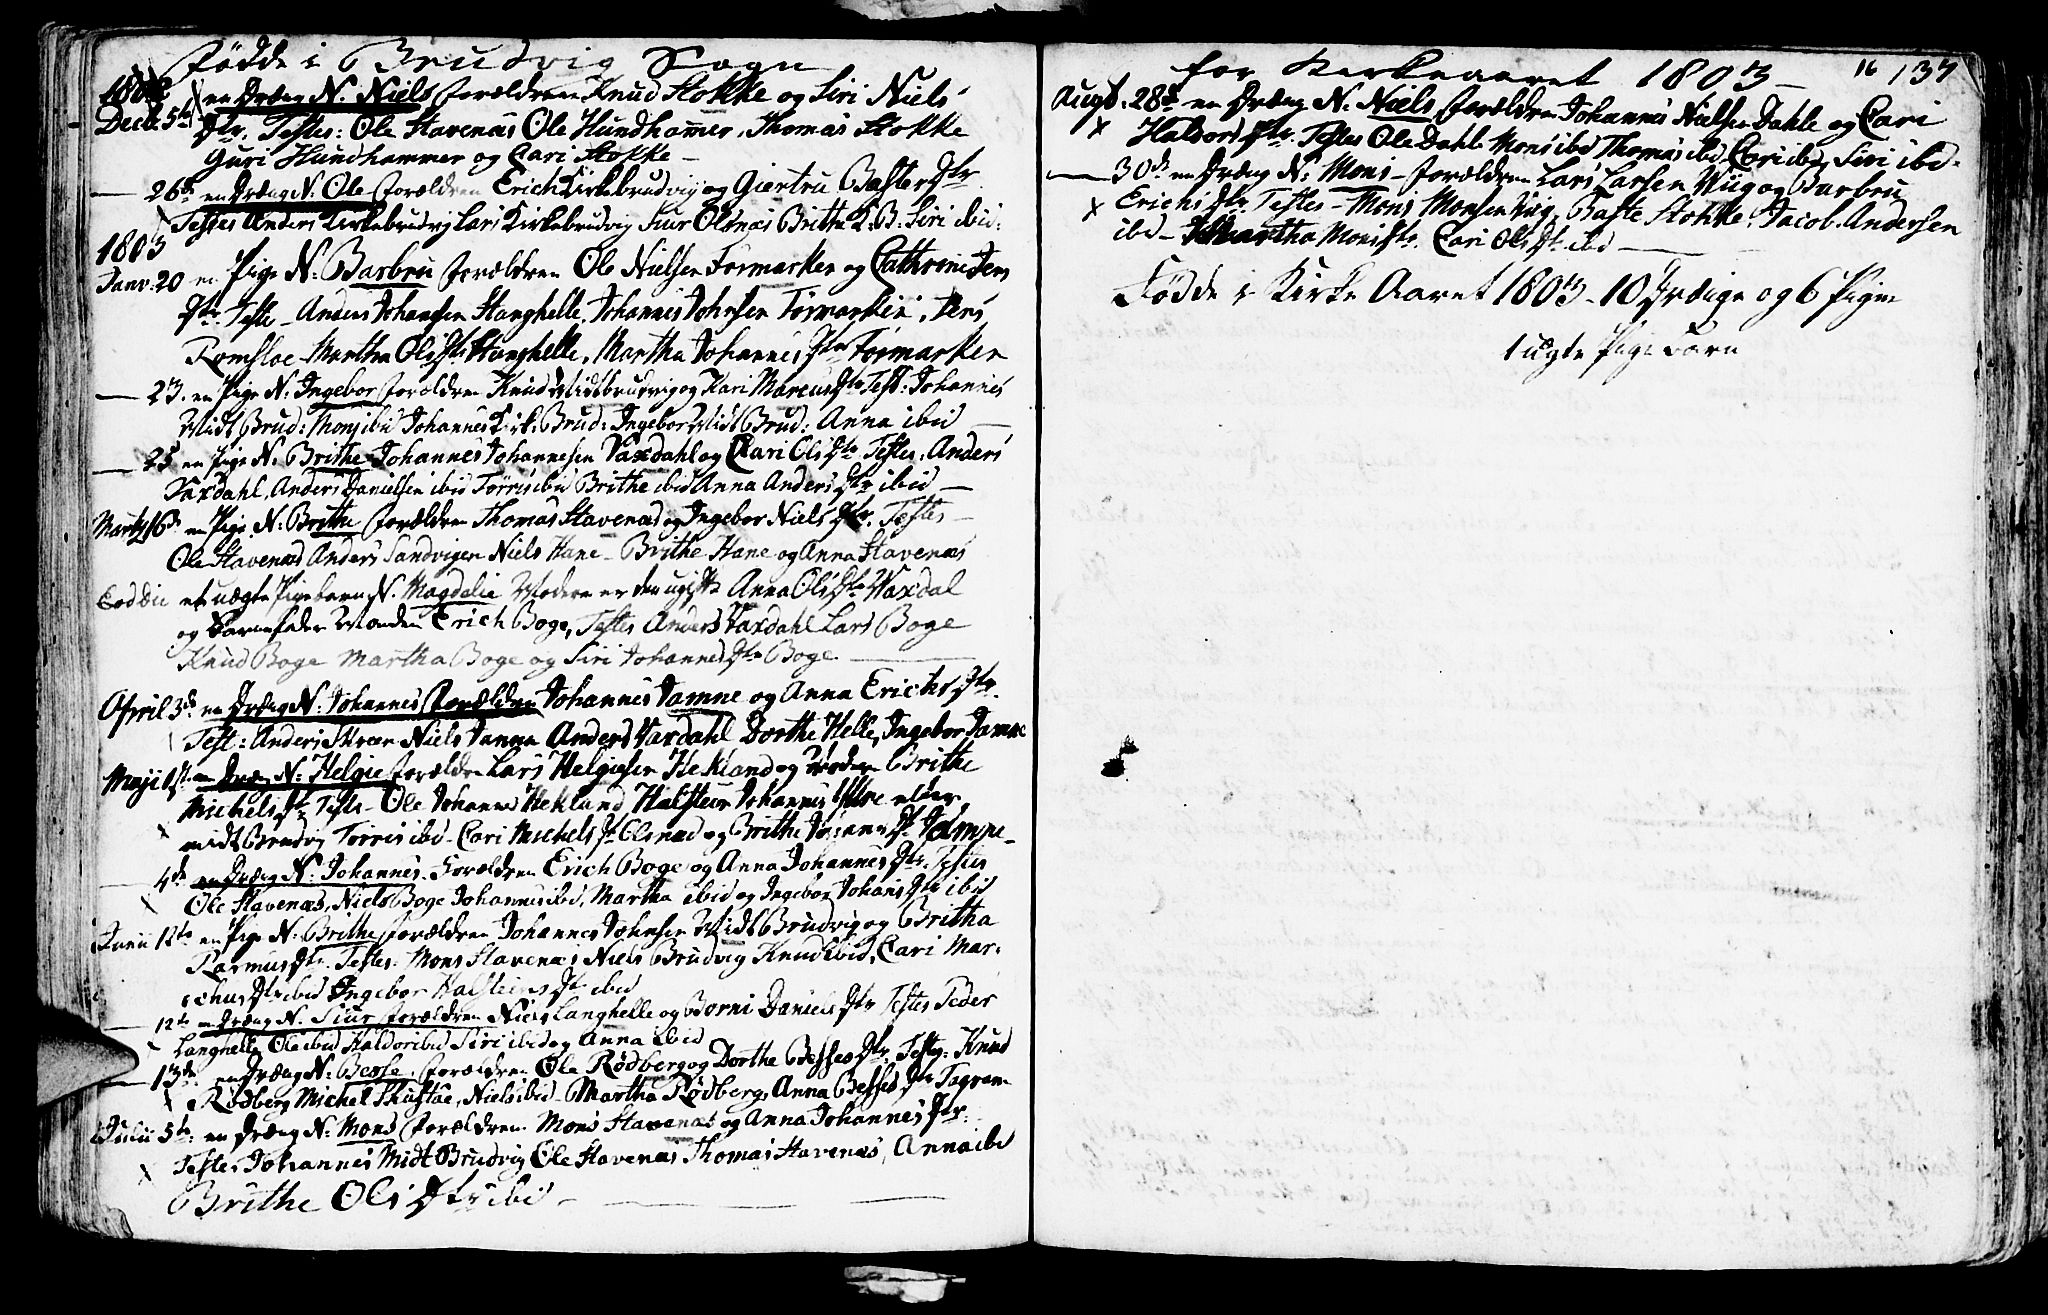 Fødde i Brudvig Sogn
1802 en Dræng N. Niels forældren Knud Stokke og Siri Niels
Decb: 5te Dtr. Testes: Ole Stavenæs Ole Hundhammer, Thomas Stokke
Guri Hundhammer og Cari Stokke –
– 26de en Dræng N: Ole forældren Erich Kirkebrudvig og Giertru Baste Dtr
Testes Anders Kirkebrudvig Lars Kirkebrudvig Siur Olsnæs Britha K.B. Siri ibid:
1803
Janv: 20 en Pige N: Barbru forældren Ole Nielsen Formarken og Cathrine Jens
Dtr. Teste – Anders Johansen Stanghelle, Johannes Johnsen Formarken, Jens
Romsloe Martha Olis Dtr Stanghelle, Martha Johannes Dtr Formarken
– 23. en Pige N: Ingebor forældren Knud Midtbrudvig og Kari Marcus Dtr Test: Johannes
Midt Brud: Mons ibid Johannes Kirk: Brud: Ingebor Midt Brud: Anna ibid –
– 25 en Pige N. Brithe Johannes Johannesen Vaxdahl og Cari Olis Dtr Testes. Anders
Vaxdahl, Anders Danielsen ibid Torris ibid Brithe ibid Anna Anders Dtr ibid –
Martz 16de en Pige N: Brithe forældren Thomas Stavenæs og Ingebor Niels Dtr. Testes –
Ole Stavenæs Anders Sandvigen Niels Hane – Brithe Hane og Anna Stavenæs
Eod Die et uægte Pigebarn N. Magdelie Moderen er den ugifte Anna Olis Dtr Vaxdal
og Barnefader Manden Erich Boge, Testes Anders Vaxdahl Lars Boge
Knud Boge Martha Boge og Siri Johannes Dtr Boge –
April 3de en Dræng N: Johannes forældren Johannes Jamne og Anna Erichs Dtr.
Test: Anders Skreen Niels Jamne Anders Vaxdahl Dorthe Helle, Ingebor Jamne
Maji 1st en Dræng N: Helgie forældren Lars Helgiesen Hekland og Moder Brithe
Michels Dtr Teste – Ole Johannes Hekland Halsteen Johannes
midt Brudvig Torris ibid – Cari Michels Dtr Olsnæs og Brithe Johannes Dtr Jamne –
4de en Dræng N: Johannes. Forældren Erich Boge og Anna Johannes Dtr. Testes
Ole Stavenæs, Niels Boge Johannes ibid, Martha ibid og Ingebor Johanis Dtr ibid
Junii 12te en Pige N. Brithe forældren Johannes Johnsen Midt Brudvig og Britha
Rasmus Dtr. Testes. Mons Stavenæs Niels Brudvig Knud ibid, Cari Mar-
chus Dtr ibid Ingebor Halsteins Dtr ibid
– 12te en Dræng N. Siur forældren Niels Langhelle og Borni Daniels Dtr Testes Peder
Langhelle Ole ibid Haldor ibid Siri ibid og Anna ibid
– 13de en Dræng N: Besse. forældren Ole Rødberg og Dorthe Besses Dtr. Testes: Knud
Rødberg Michel Skustøe, Niels ibid – Martha Rødberg, Anna Besses Dtr
Julii 5te en Dræng N: Mons forældren Mons Stavenæs og Anna Johannes Dtr:
Testes Johannes Midt Brudvig Ole Stavenæs Thomas Stavenæs, Anna ibd
Brithe Olis Dtr ibid –
for Kirkeaaret 1803 –
16 137
Augt: 28de en Dræng N. Niels forældren Johannes Nielsen Dahle og Cari
Haldors Dtr. Testes Ole Dahl. Mons ibd Thomas ibd Cari ibd, Siri ibd.
– 30de en Dræng N: Mons – forældren Lars Larsen Wiig og Barbru
Erichs Dtr Testes – Mons Monsen Wiig, Baste Stokke, Jacob Andersen
ibd – Martha Monis Dtr. Cari Olis Dtr ibd –
Fødde i Kirke Aaret 1803 – 10 Drænge og 6 Piger
1 uægte Pige Barn